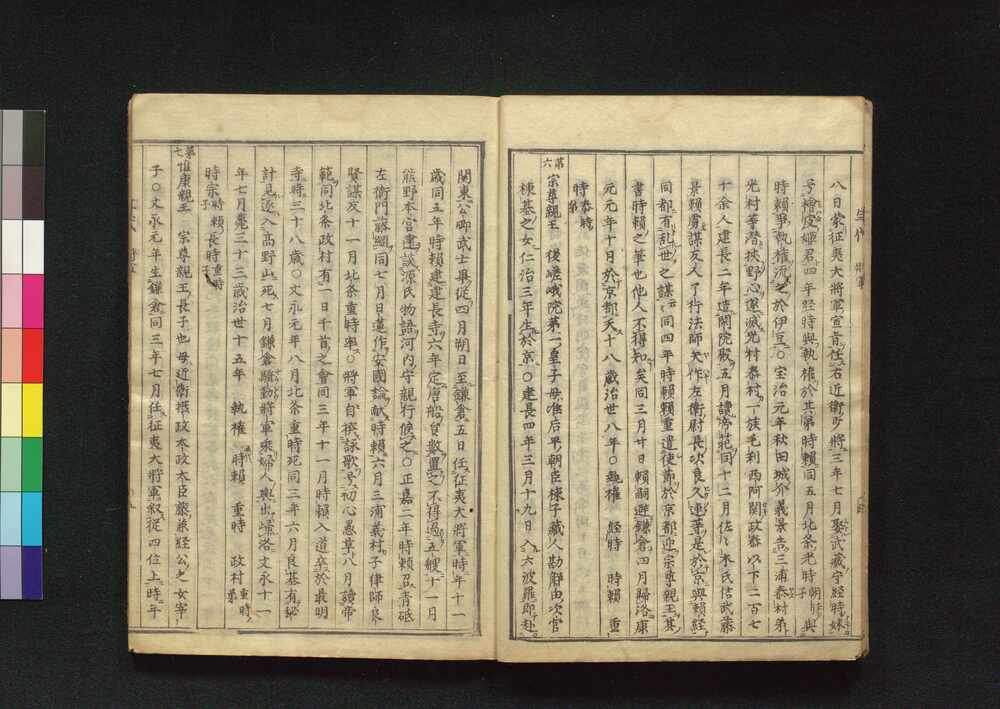 八日蒙征夷大将軍宣旨任右近衛少将三年七月娶武蔵守経時妹
号檜皮姫君四年経時與執権於其弟時頼同五月北条光時朝時子與
時頼爭執権流之於伊豆○宝治元年秋田城介義景告三浦泰村弟
光村等潜挟野心遂滅光村泰村一族毛利西阿関政泰以下二百七
十余人建長二年造閑院殿五月讀帝範同十二月佐々木氏信武藤
景頼虜謀反人了行法師矢作左衛尉長次良久連等是於京與頼経
同都有乱世之謀云同四年時頼頼重遣使節於京都迎宗尊親王其
書時頼之筆也他人不得知矣同三月廿日頼嗣避鎌倉四月帰洛康
元元年十月於京都夭十八歳治世八年○執権 経時 時頼 重
時泰時弟
第六 宗尊親王 後嵯峨院第一皇子母准后平朝臣棟子蔵人勘解由次官
棟基之女仁治三年生於京○建長四年三月十九日入六波羅即赴
関東公卿武士畢従四月朔日至鎌倉五日任征夷大将軍時年十一
歳同五年時頼建建長寺六年定唐船員數置之不得過五艘十一月
熊野本宮遷談源氏物語河内守親行候之○正嘉二年時頼召青砥
左衛門藤綱同七月日蓮作安國論献時頼六月三浦義村子律師良
賢謀反十一月北条重時卒○将軍自撰詠歌号初心愚草八月讀帝
範同北条政村有一日千首之會同三年十一月時頼入道卒於最明
寺時三十八歳○文永元年八月北条重時死同三年六月良基有秘
計見逐入高野山死七月鎌倉騒動将軍乘婦人輿出帰洛文永十一
年七月薨三十三歳治世十五年 執権 時頼 重時 政村重時弟
時宗時頼子長時重時子
第七 惟康親王 宗尊親王長子也母近衛摂政太政大臣藤兼経公之女宰
子○文永元年生鎌倉同三年七月任征夷大将軍叙従四位上時年